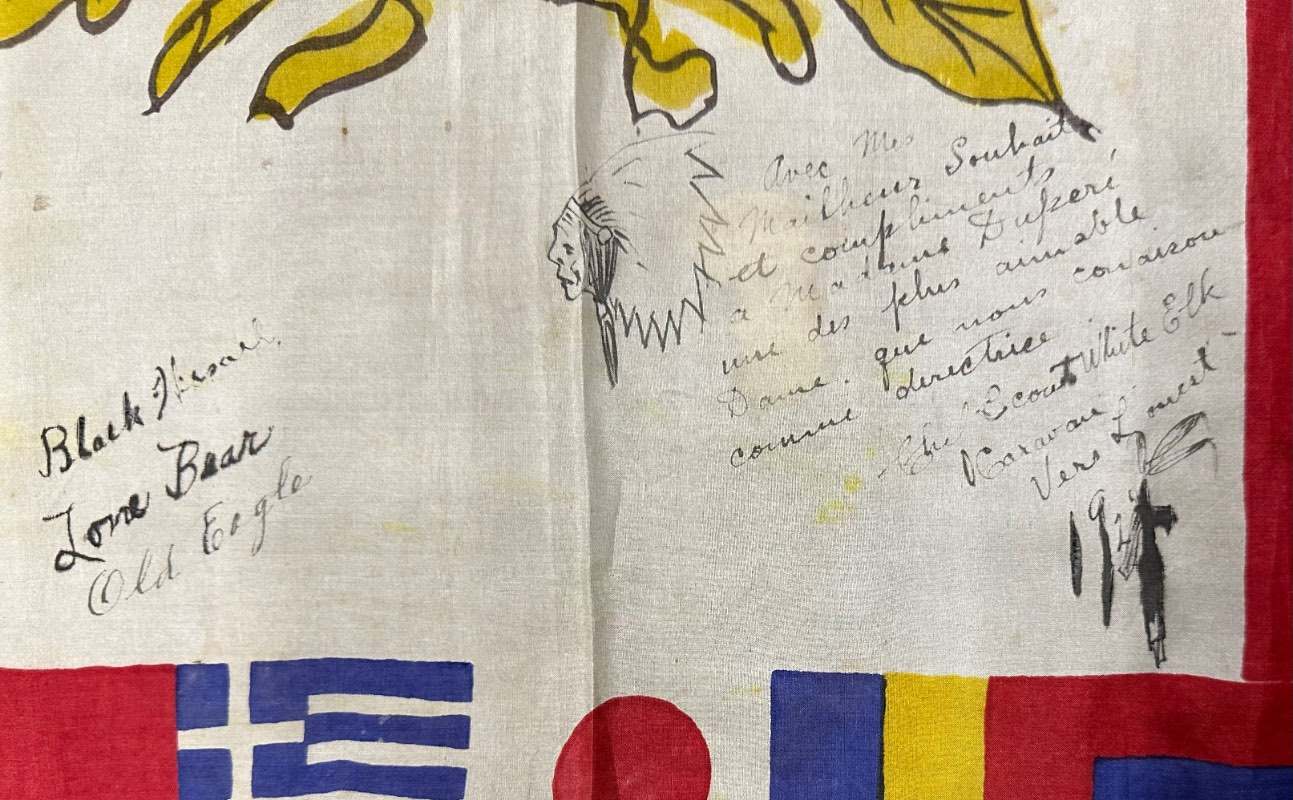 Black
Lone Bear
Old Eagle
Avec Mes
Mailheur Souhait
et compliments
a Madame Duperé
une des plus aimable
Dame. que nous conaison
comme directrice
Scout White Elk
Karavan
Vers L'ouest